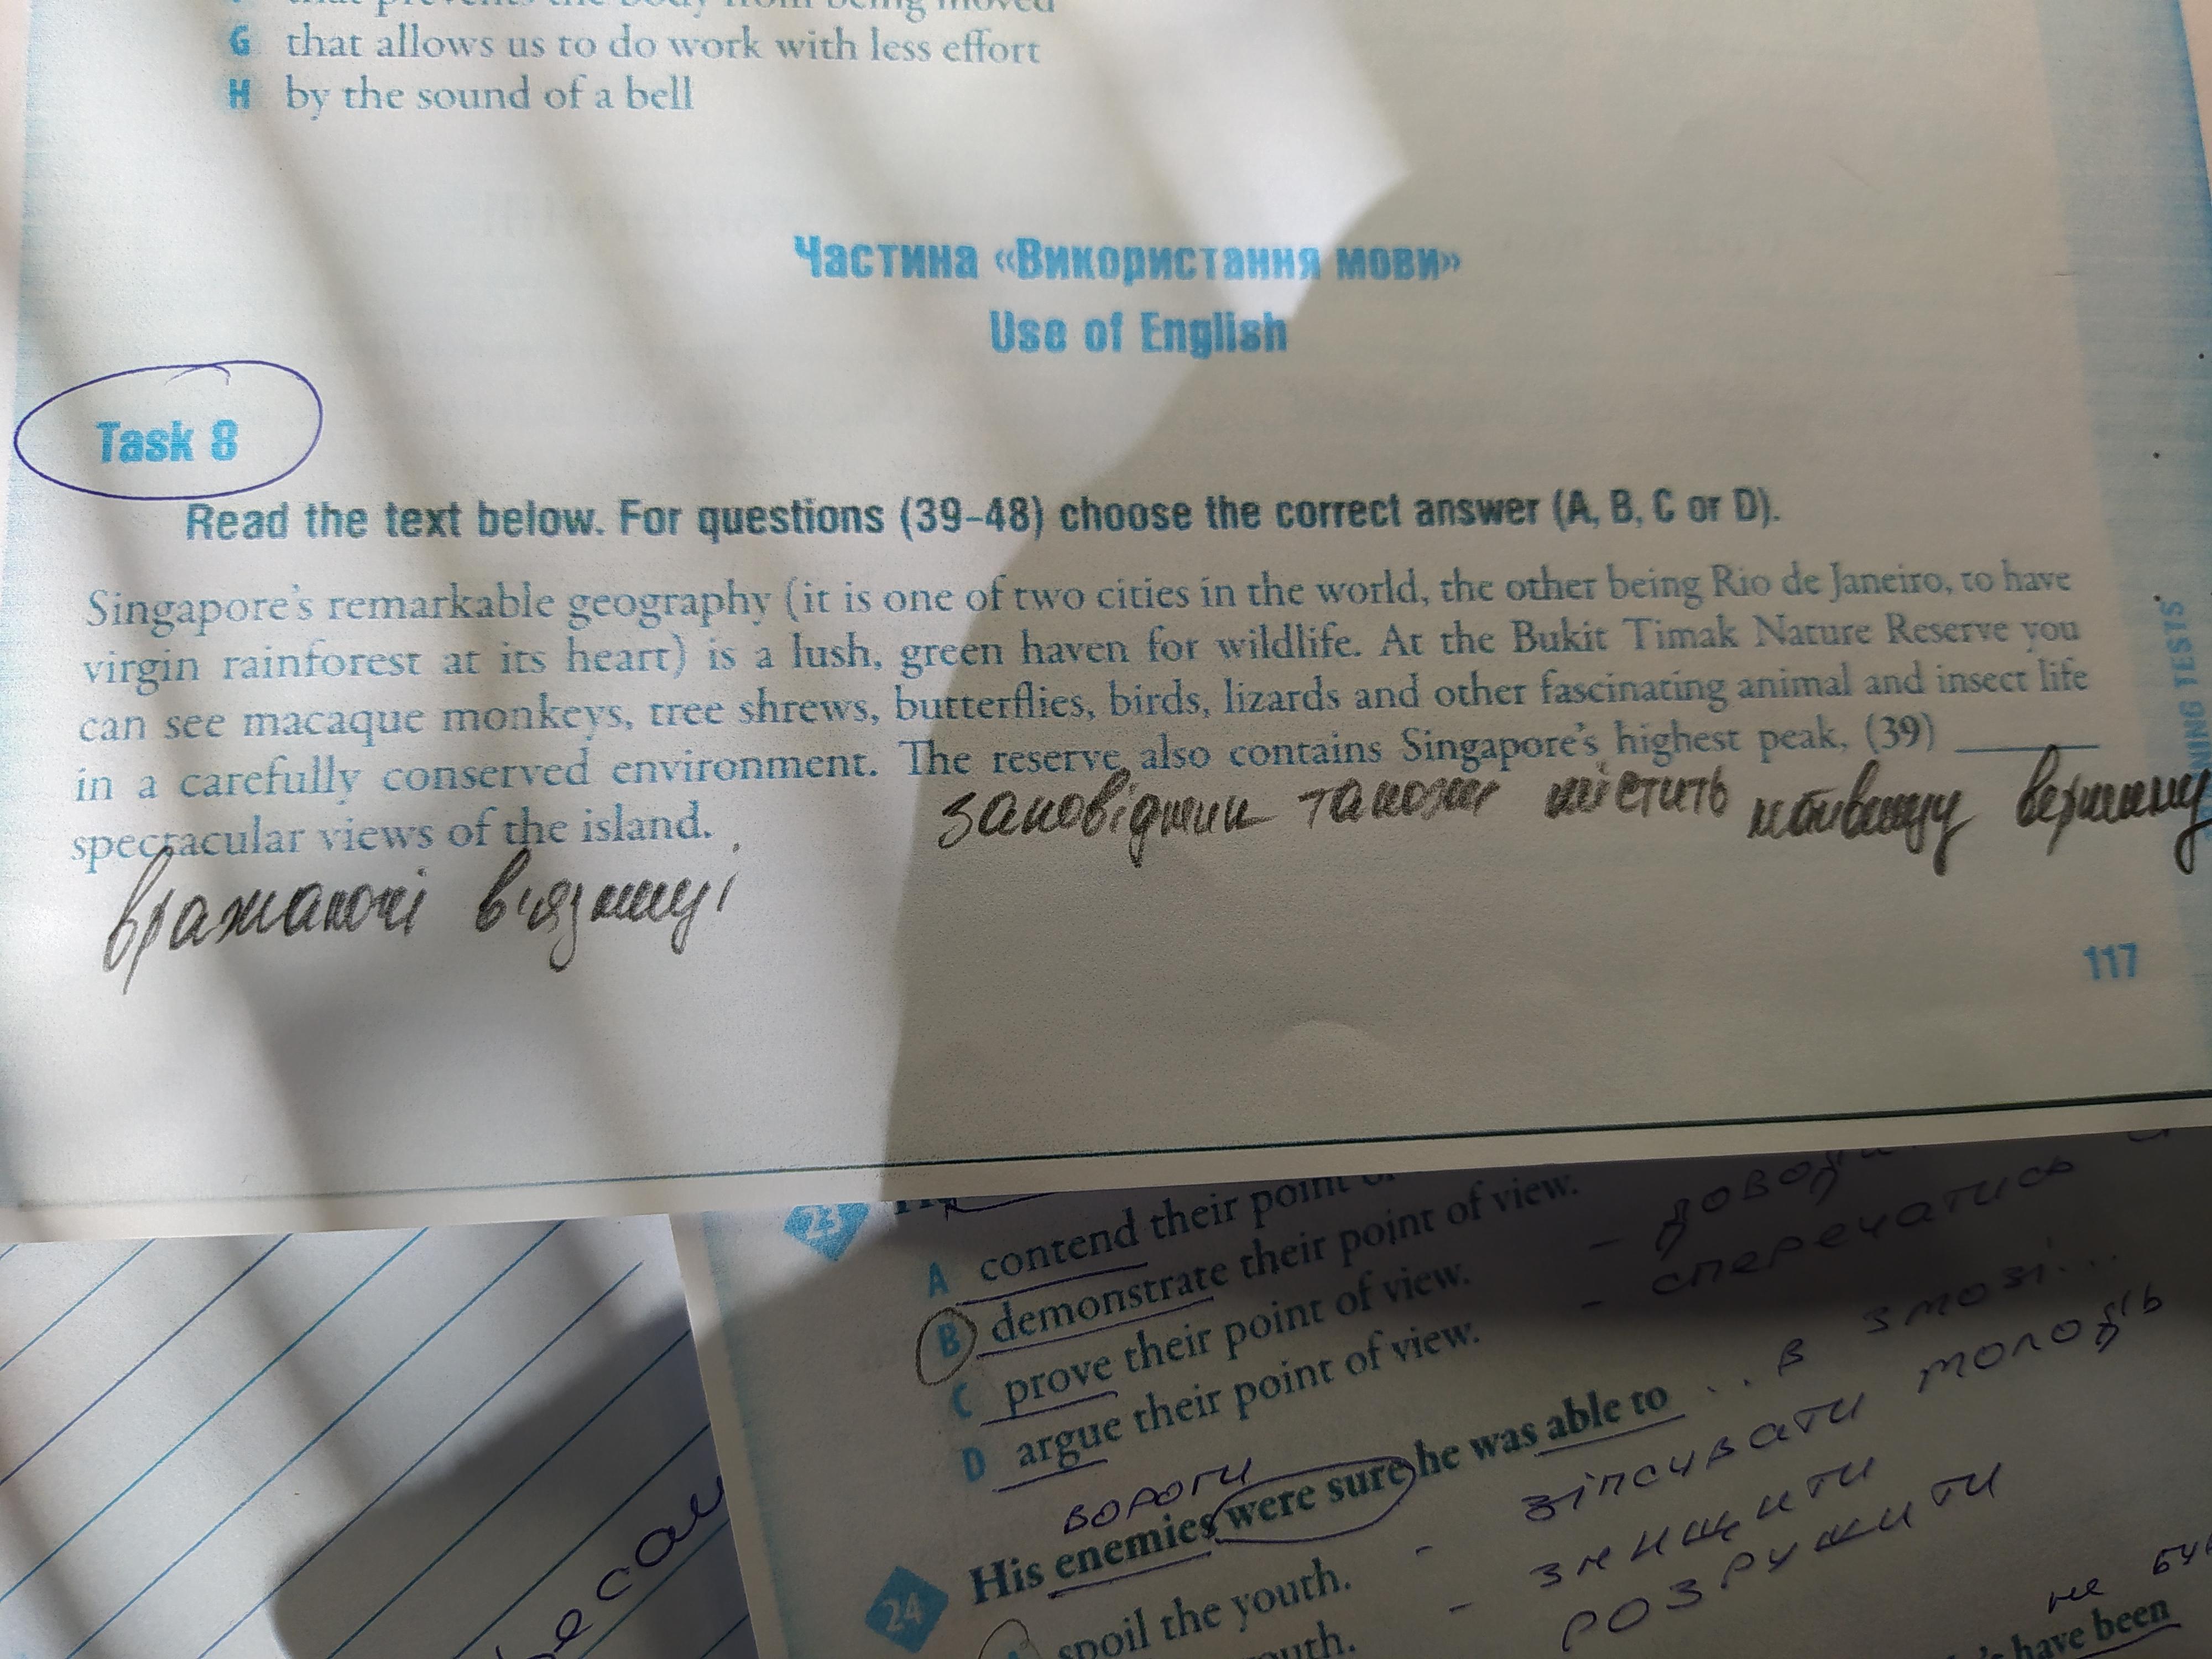 that prevents the body from being moved
G that allows us to do work with less effort
H by the sound of a bell
Частина «Використання мови»
Use of English
Task 8
Read the text below. For questions (39–48) choose the correct answer (A, B, C or D).
Singapore's remarkable geography (it is one of two cities in the world, the other being Rio de Janeiro, to have
virgin rainforest at its heart) is a lush, green haven for wildlife. At the Bukit Timak Nature Reserve you
can see macaque monkeys, tree shrews, butterflies, birds, lizards and other fascinating animal and insect life
in a carefully conserved environment. The reserve also contains Singapore's highest peak, (39) ______
заповідник також містить найвищу вершину
spectacular views of the island.
вражаючі
117
NING TESTS
23
A contend their point
B demonstrate their point of view.
C prove their point of view.
D argue their point of view.
- сперечатись
вороги
24 His enemies were sure he was able to ... в змозі...
spoil the youth. - зіпсувати молодь
outh. - знищити
розрушити
не
have been